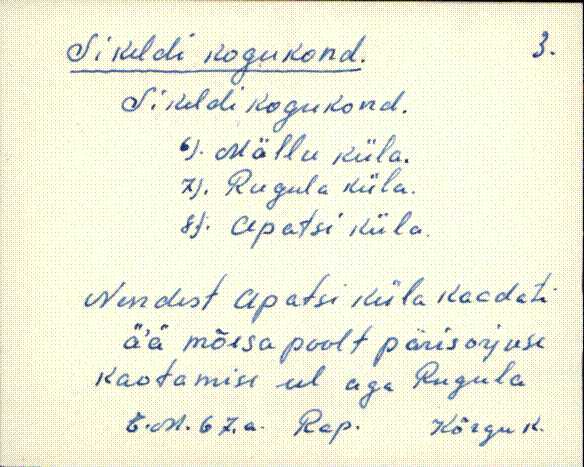 Sikeldi kogukond. 3.
Sikeldi kogukond.
6). Mällu küla.
7). Rugula küla.
8). Apatsi küla.
Nendest Apatsi küla kaadati
ä'ä mõisa poolt pärisorjuse
kaotamise el aga Rugula
E.M. 67.a. Rap. Kõrgu k.